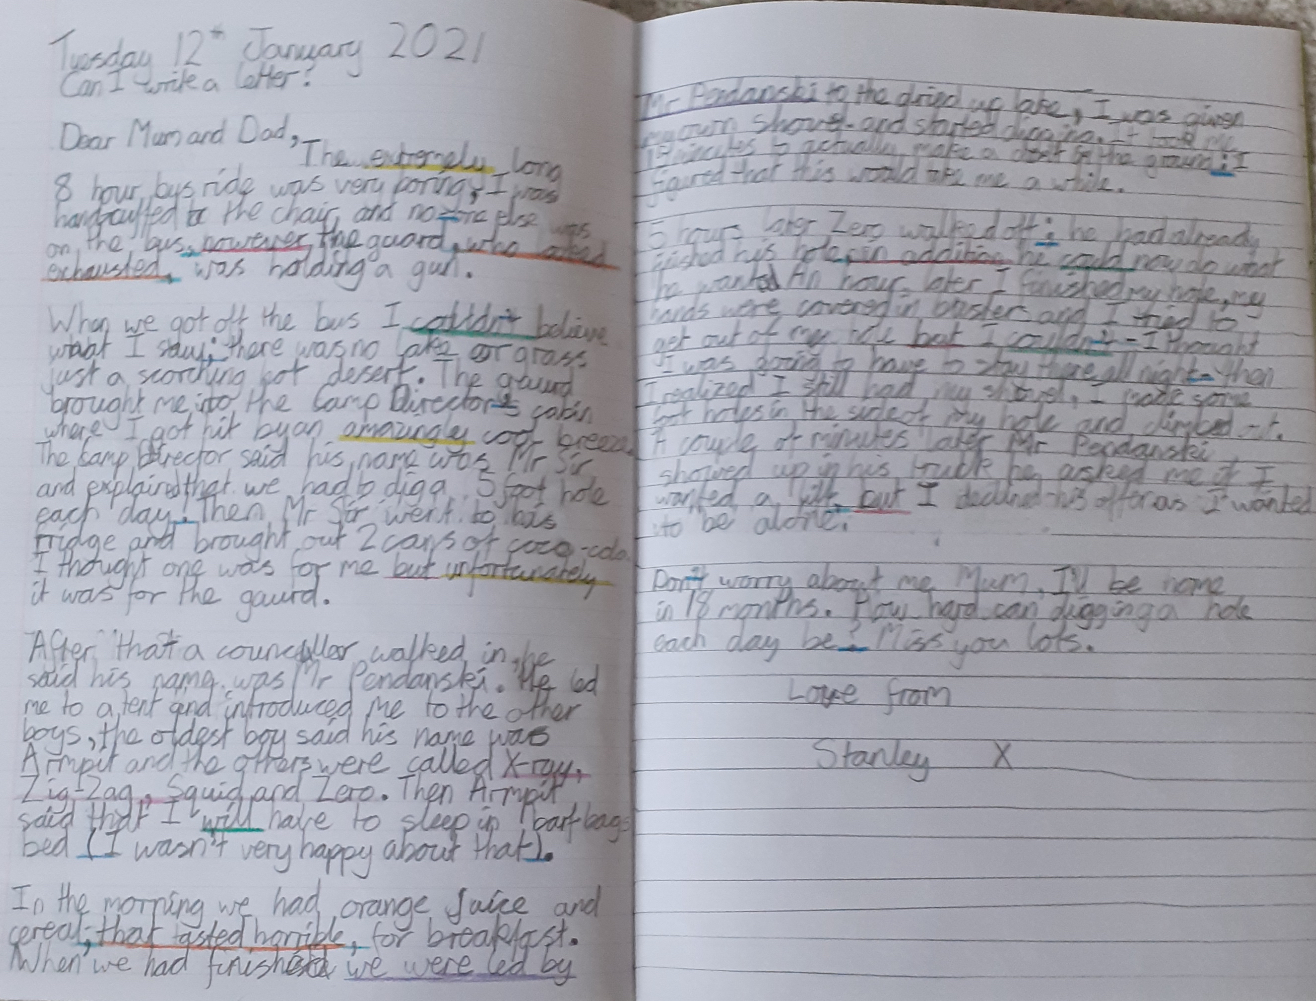 Tuesday 12th January 2021
Can I write a letter?
Dear Mum and Dad,
The extremely long
8 hour bus ride was very boring, I was
handcuffed to the chair and no-one else was
on the bus, however, the guard, who looked
exhausted, was holding a gun.
When we got off the bus I couldn't believe
what I saw: there was no lake or grass
just a scorching hot desert. The gaurd
brought me into the Camp Director's cabin
where I got hit by an amazingly cool breeze.
The camp Director said his name was Mr Sir
and explained that we had to dig a 5 foot hole
each day! Then Mr Sir went to his
fridge and brought out 2 cans of coca-cola.
I thought one was for me but unfortunately
it was for the gaurd.
After that a councellor walked in, he
said his name was Mr Pendanski. He led
me to a tent and introduced me to the other
boys, the oldest boy said his name was
Armpit and the others were called X-ray,
Zig-Zag, Squid and Zero. Then Armpit
said that I will have to sleep in barf bags
bed (I wasn't very happy about that).
In the morning we had orange juice and
cereal, that tasted horrible, for breakfast.
When we had finished we were led by
Mr Pendanski to the dried up lake, I was given
my own shovel and started digging. It took me
minutes to actually make a dent in the ground; I
figured that this would take me a while.
5 hours later Zero walked off; he had already
finished his hole, in addition he could now do what
he wanted. An hour later I finished my hole, my
hands were covered in blisters and I tried to
get out of my hole but I couldn't - I thought
I was going to have to stay there all night - then
I realized I still had my shovel, I made some
foot holes in the side of my hole and climbed out.
A couple of minutes later Mr Pendanski
showed up in his truck he asked me if I
wanted a lift but I declined his offer as I wanted
to be alone.
Don't worry about me Mum, I'll be home
in 18 months. How hard can digging a hole
each day be? Miss you lots.
Love from
Stanley X